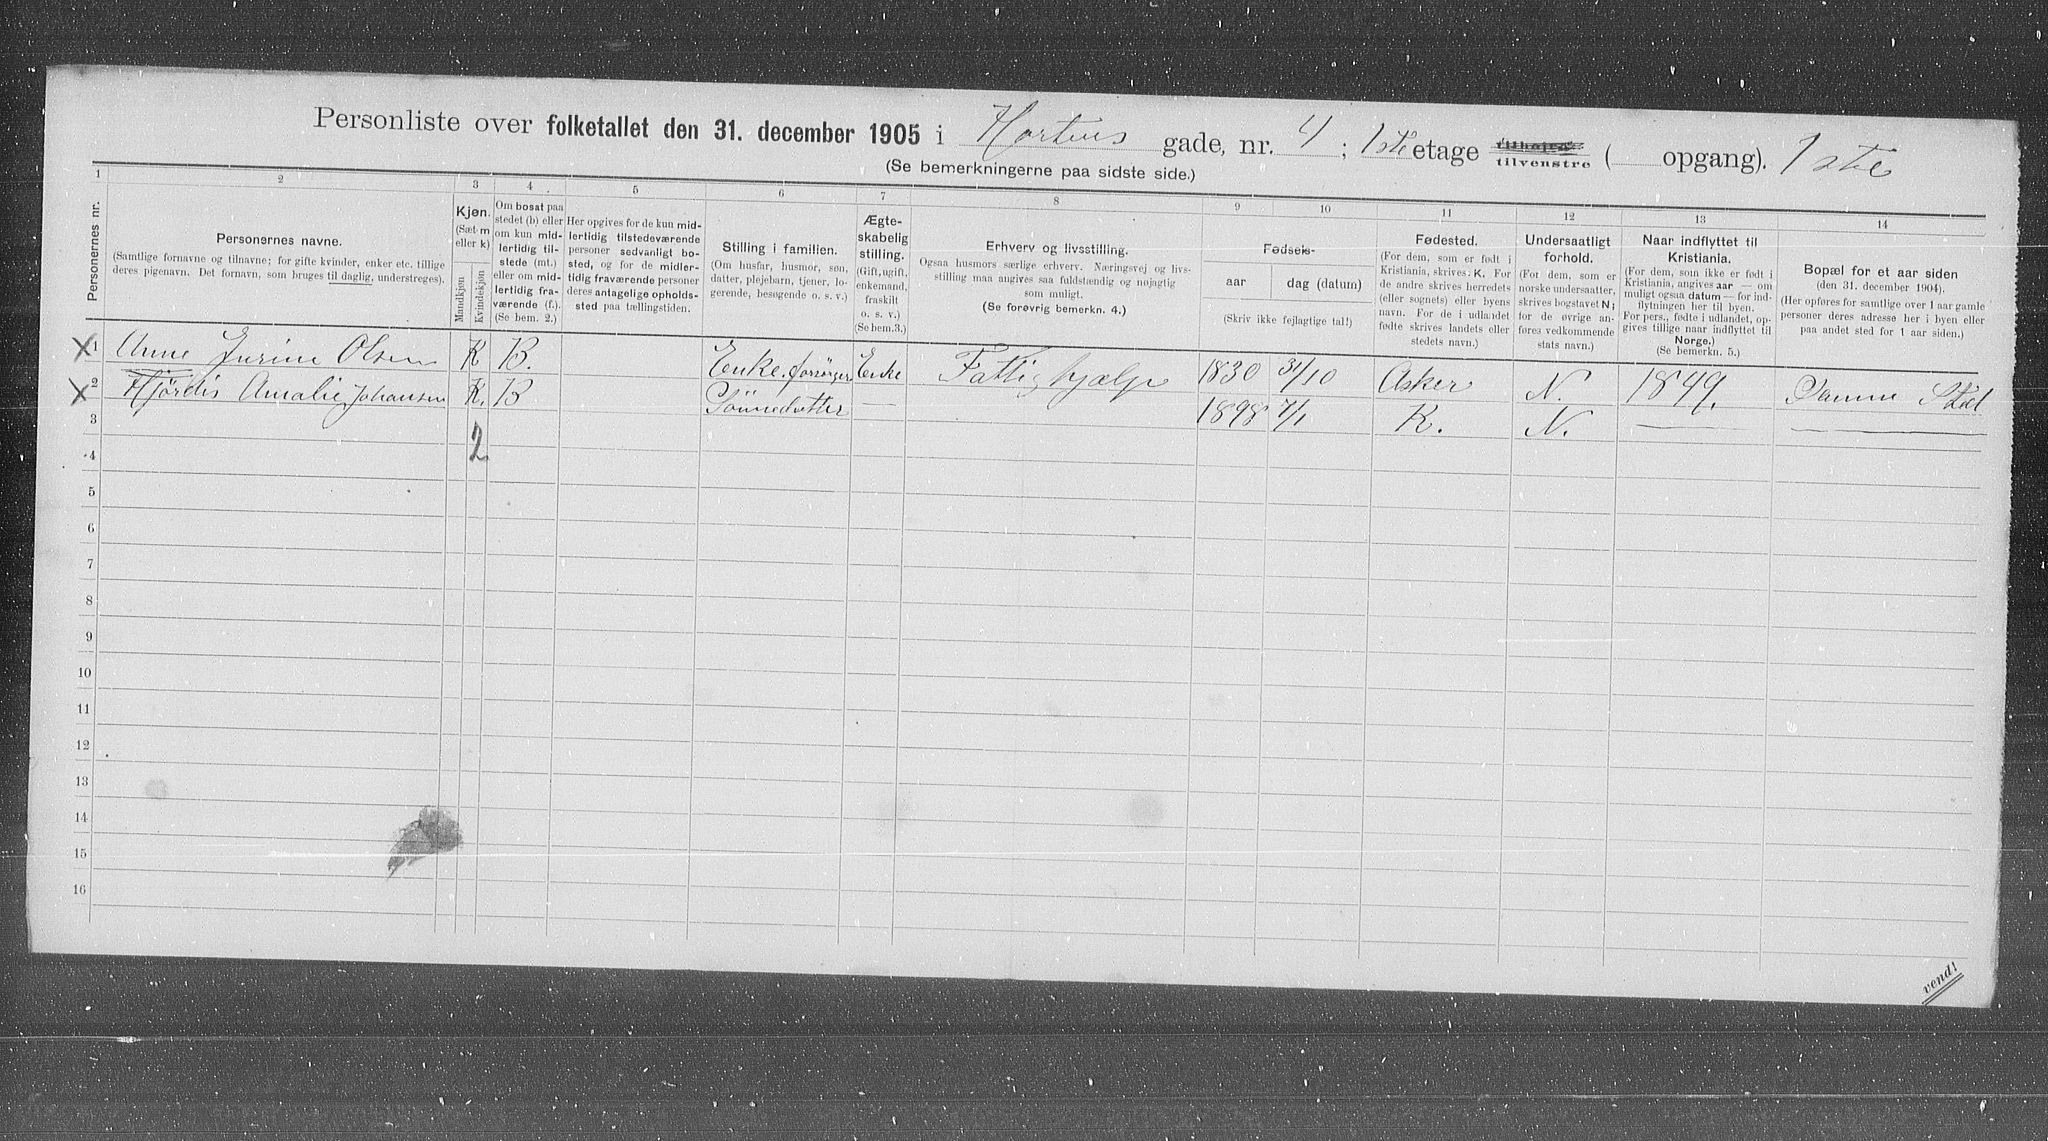 Personliste over folketallet den 31. december 1905 i Hortens gade, nr. 4 ; 1ste etage tilhøire tilvenstre ( opgang). 1ste
(Se bemerkningerne paa sidste side.)
1 2 3 4 5 6 7 8 9 10 11 12 13 14
Personernes nr.
Personernes navne.
(Samtlige fornavne og tilnavne; for gifte kvinder, enker etc. tillige
deres pigenavn. Det fornavn, som bruges til daglig, understreges).
Kjøn.
(Sæt m
eller k)
Mandkjøn
Kvindekjøn
Om bosat paa
stedet (b) eller
om kun mid-
lertidig til-
stede (mt.)
eller om mid-
lertidig fra-
værende (f.).
(Se bem. 2.)
Her opgives for de kun mid-
lertidig tilstedeværende
personer sedvanlig bo-
sted, og for de midler-
tidig fraværende personer
deres antagelige opholds-
sted paa tællingstiden.
Stilling i familien.
(Om husfar, husmor, søn,
datter, plejebarn, tjener, lo-
gerende, besøgende o. s. v.)
Ægte-
skabelig
stilling.
(Gift, ugift,
enkemand,
fraskilt
o. s. v.)
(Se bem. 3.)
Erhverv og livsstilling.
Ogsaa husmors særlige erhverv. Næringsvej og livs-
stilling maa angives saa fuldstændig og nøjagtig
som muligt.
(Se forøvrig bemerkn. 4.)
Fødsels-
aar dag (datum)
(Skriv ikke fejlagtige tal!)
Fødested.
(For dem, som er født i
Kristiania, skrives: K. For
de andre skrives herredets
(eller sognets) eller byens
navn. For de i udlandet
fødte skrives landets eller
stedets navn.)
Undersaatligt
forhold.
(For dem, som er
norske undersaatter,
skrives bogstavet N;
for de øvrige an-
føres vedkommende
stats navn.)
Naar indflyttet til
Kristiania.
(For dem, som ikke er født i
Kristiania, angives aar — om
muligt ogsaa datum — for ind-
flytningen her til byen.
For pers., fødte i udlandet, op-
gives tillige naar indflyttet til
Norge.)
(Se bemerkn. 5.)
Bopæl for et aar siden
(den 31. december 1904).
(Her opføres for samtlige over 1 aar gamle
personer deres adresse her i byen eller
paa andet sted for 1 aar siden.)
X 1 Anne Jurine Olsen K B. Enke. forsørger Enke Fattighjælp 1830 31/10 Asker N. 1849. Samme Sted
X 2 Hjördis Amalie Johansen K. B Sönnedatter — 1898 7/1 K. N. — —
3
2
4
5
6
7
8
9
10
11
12
13
14
15
16
vend!